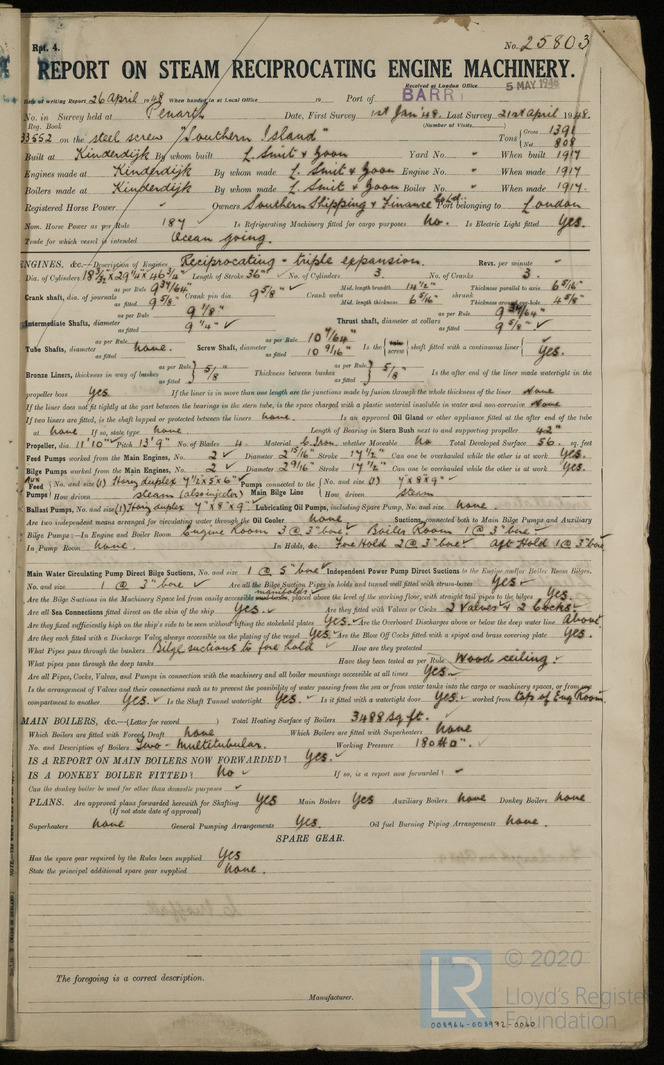 Rpt. 4.
No. 25803
REPORT ON STEAM RECIPROCATING ENGINE MACHINERY.
Received at London Office 5 MAY 1948
Date of writing Report 26 April 1948 When handed in at Local Office 19 Port of BARRY
No. in Survey held at Penarth Date, First Survey 1st Jan '48. Last Survey 21st April 1948.
Reg. Book (Number of Visits)
33552 on the steel screw "Southern Island" Tons Gross 1391 Net 808
Built at Kinderdijk By whom built L. Smit & Zoon Yard No. " When built 1917
Engines made at Kinderdijk By whom made L. Smit & Zoon Engine No. " When made 1917
Boilers made at Kinderdijk By whom made L. Smit & Zoon Boiler No. " When made 1917.
Registered Horse Power " Owners Southern Shipping & Finance Co Ltd. Port belonging to London
Nom. Horse Power as per Rule 187 Is Refrigerating Machinery fitted for cargo purposes No. Is Electric Light fitted Yes.
Trade for which vessel is intended Ocean going.
ENGINES, &c.—Description of Engines Reciprocating - triple expansion. Revs. per minute "
Dia. of Cylinders Length of Stroke 36" No. of Cylinders 3. No. of Cranks 3.
Crank shaft, dia. of journals as per Rule 9 39/64" as fitted 9 5/8" Crank pin dia. 9 5/8" Crank webs Mid. length breadth 14 1/2" Mid. length thickness 6 5/16" shrunk Thickness parallel to axis 6 5/16" Thickness around eye-hole 4 5/8"
Intermediate Shafts, diameter as per Rule 9 1/8" as fitted 9 1/4" Thrust shaft, diameter at collars as per Rule 9 39/64" as fitted 9 5/8"
Tube Shafts, diameter as per Rule as fitted none. Screw Shaft, diameter as per Rule 10 7/64" as fitted 10 9/16" Is the screw shaft fitted with a continuous liner Yes.
Bronze Liners, thickness in way of bushes as per Rule as fitted 5/8" Thickness between bushes as per Rule as fitted 5/8" Is the after end of the liner made watertight in the
propeller boss Yes If the liner is in more than one length are the junctions made by fusion through the whole thickness of the liner none
If the liner does not fit tightly at the part between the bearings in the stern tube, is the space charged with a plastic material insoluble in water and non-corrosive none
If two liners are fitted, is the shaft lapped or protected between the liners none. Is an approved Oil Gland or other appliance fitted at the after end of the tube
at none If so, state type none. Length of Bearing in Stern Bush next to and supporting propeller 42"
Propeller, dia. 11'10" Pitch 13'9" No. of Blades 4. Material C. Iron. whether Moveable No Total Developed Surface 56. sq. feet
Feed Pumps worked from the Main Engines, No. 2 Diameter 2 15/16" Stroke 17 1/2" Can one be overhauled while the other is at work Yes.
Bilge Pumps worked from the Main Engines, No. 2 Diameter 2 9/16" Stroke 17 1/2" Can one be overhauled while the other is at work Yes.
Aux Feed Pumps No. and size (1) Horiz duplex 7 1/2"x5"x6" Pumps connected to the Main Bilge Line No. and size (1) 7"x8"x9"
How driven steam (also injector) How driven steam
Ballast Pumps, No. and size (1) Horiz duplex 7"x8"x9" Lubricating Oil Pumps, including Spare Pump, No. and size none.
Are two independent means arranged for circulating water through the Oil Cooler none Suctions, connected both to Main Bilge Pumps and Auxiliary
Bilge Pumps:—In Engine and Boiler Room Engine Room 3 @ 3" bore Boiler Room 1 @ 3" bore
In Pump Room none. In Holds, &c. Fore Hold 2 @ 3" bore Aft Hold 1 @ 3" bore
Main Water Circulating Pump Direct Bilge Suctions, No. and size 1 @ 5" bore Independent Power Pump Direct Suctions to the Engine and/or Boiler Room Bilges,
No. and size 1 @ 3" bore Are all the Bilge Suction Pipes in holds and tunnel well fitted with strum-boxes Yes
Are the Bilge Suctions in the Machinery Space led from easily accessible manifolds placed above the level of the working floor, with straight tail pipes to the bilges Yes.
Are all Sea Connections fitted direct on the skin of the ship Yes. Are they fitted with Valves or Cocks 2 Valves & 2 Cocks
Are they fixed sufficiently high on the ship's side to be seen without lifting the stokehold plates Yes. Are the Overboard Discharges above or below the deep water line Above
Are they each fitted with a Discharge Valve always accessible on the plating of the vessel Yes Are the Blow Off Cocks fitted with a spigot and brass covering plate Yes.
What Pipes pass through the bunkers Bilge suctions to fore hold How are they protected Wood ceiling.
What pipes pass through the deep tanks Have they been tested as per Rule
Are all Pipes, Cocks, Valves, and Pumps in connection with the machinery and all boiler mountings accessible at all times Yes.
Is the arrangement of Valves and their connections such as to prevent the possibility of water passing from the sea or from water tanks into the cargo or machinery spaces, or from one
compartment to another Yes. Is the Shaft Tunnel watertight Yes. Is it fitted with a watertight door Yes. worked from top of Eng Room
MAIN BOILERS, &c.—(Letter for record ) Total Heating Surface of Boilers 3488 sq ft.
Which Boilers are fitted with Forced Draft none Which Boilers are fitted with Superheaters none
No. and Description of Boilers Two - multitubular. Working Pressure 180 #□".
IS A REPORT ON MAIN BOILERS NOW FORWARDED? Yes.
IS A DONKEY BOILER FITTED? No If so, is a report now forwarded?
Can the donkey boiler be used for other than domestic purposes
PLANS. Are approved plans forwarded herewith for Shafting Yes Main Boilers Yes Auxiliary Boilers none Donkey Boilers none
(If not state date of approval)
Superheaters none General Pumping Arrangements Yes. Oil fuel Burning Piping Arrangements none.
SPARE GEAR.
Has the spare gear required by the Rules been supplied Yes
State the principal additional spare gear supplied none.
The foregoing is a correct description.
Manufacturer.
LR © 2020
Lloyd's Register
Foundation
008964-008972-0060